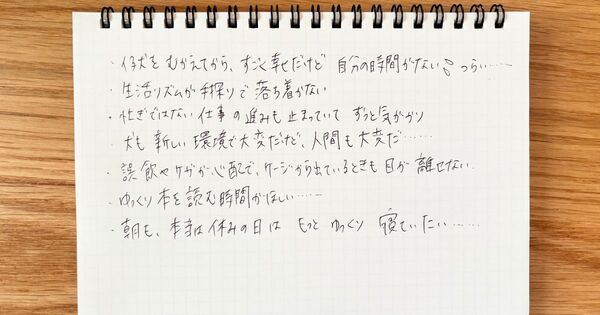 ・仔犬をむかえてから、すごく幸せだけど 自分の時間がない つらい……
・生活リズムが手探りで落ち着かない
・忙ぎではない仕事の進みも止まっていて ずっと気がかり
・犬も新しい環境で大変だけど、人間も大変だ……
・誤飲やケガが心配で、ケージから出ているときも目が離せない
・ゆっくり本を読む時間がほしい……
・朝も、本当は休みの日は もっと ゆっくり 寝ていたい……